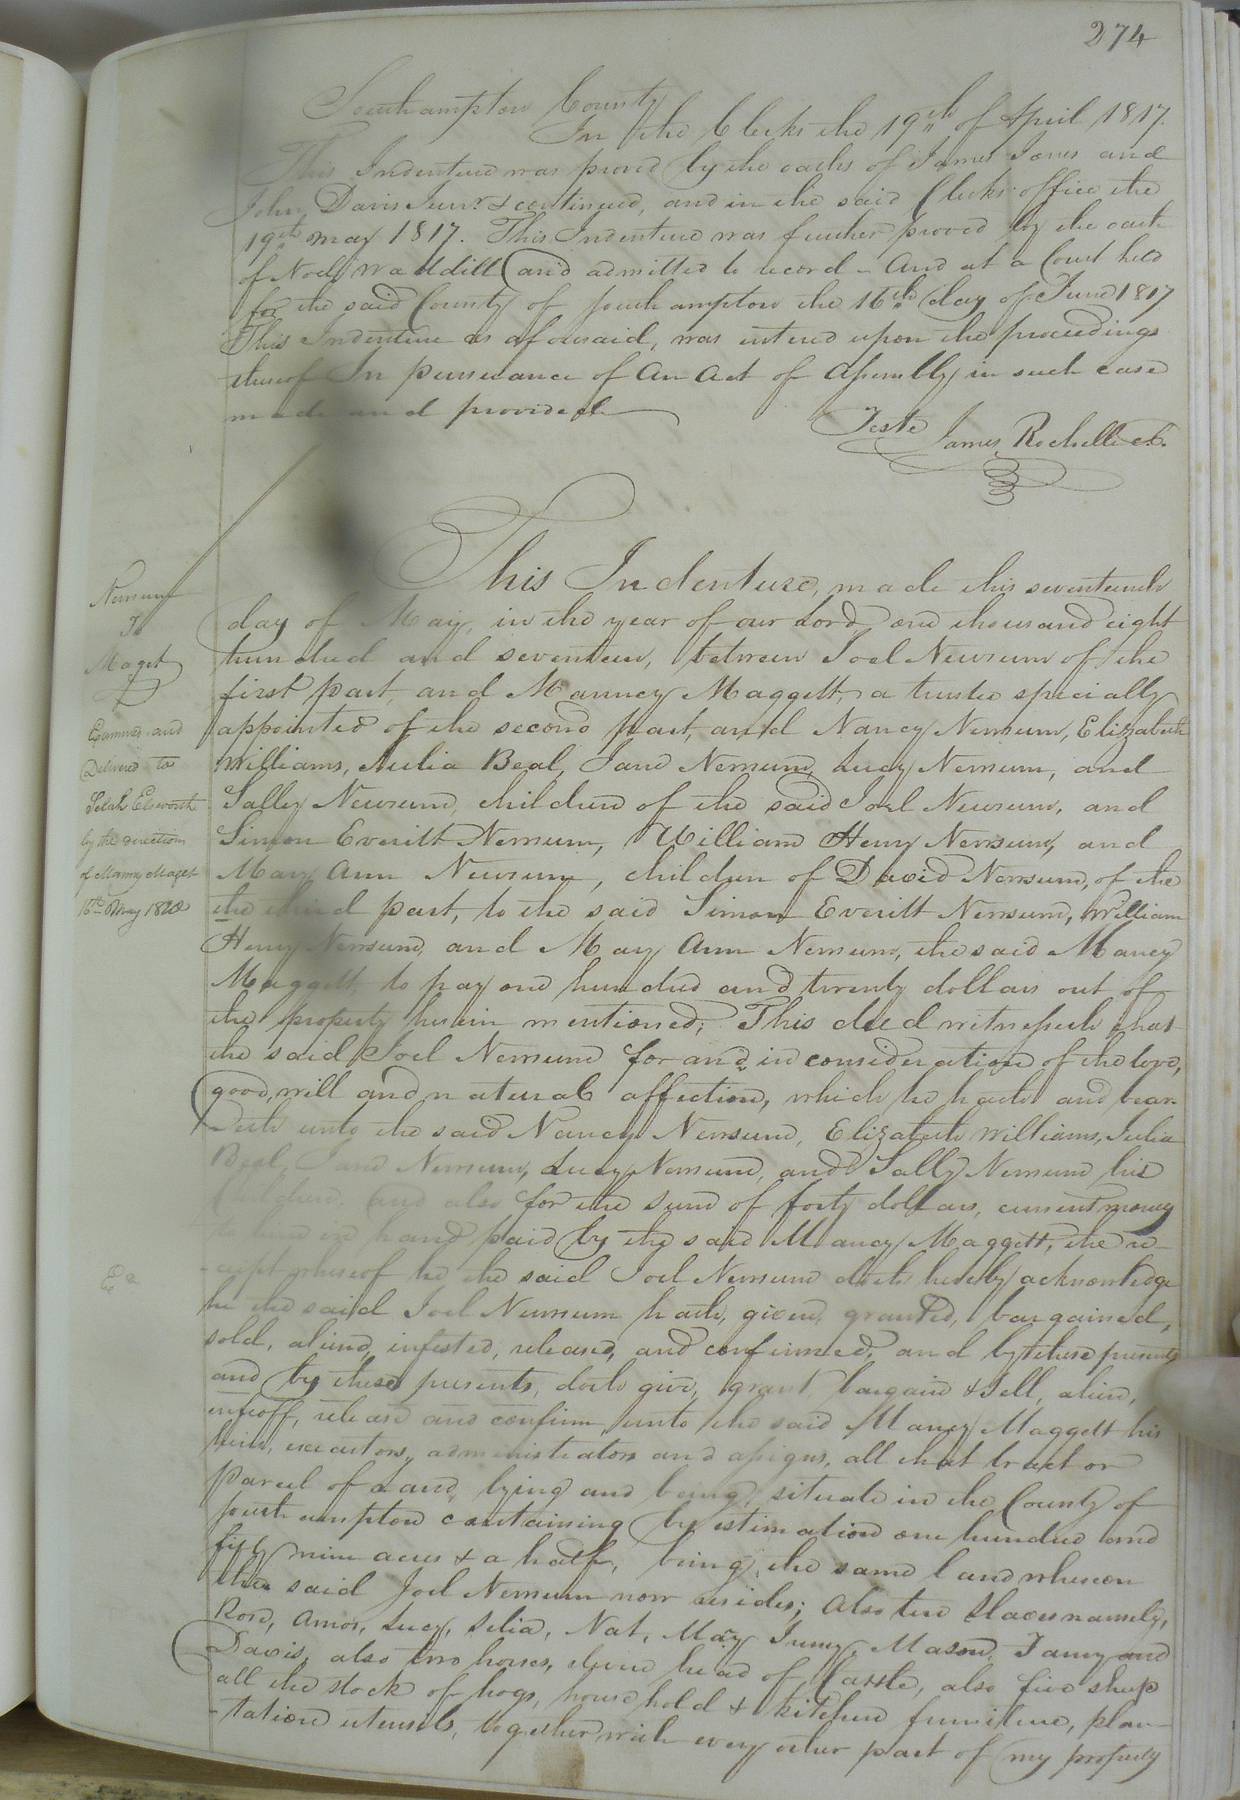 274
Southampton County
In the Clerks the 19th of April 1817.
This Indenture was proved by the oaths of James Jones and
John Davis Junr. & continued, and in the said Clerks office the
19th may 1817. This Indenture was further proved by the oath
of Noel Waddill and admitted to record - And at a Court held
for the said County of Southampton the 16th day of June 1817
This Indenture as aforesaid, was entered upon the proceedings
thereof In pursuance of An Act of Assembly in such case
made and provided
Teste
James Rochelle Ck.
This Indenture, made this seventeenth
day of May, in the year of our Lord one thousand eight
hundred and seventeen, between Joel Newsum of the
first part, and Manncy Maggett, a trustee specially
appointed of the second part, and Nancy Newsum, Elizabeth
Williams, Julia Beal, Jane Newsum, Lucy Newsum, and
Sally Newsum, children of the said Joel Newsum, and
Simon Everitt Newsum, William Henry Newsum, and
Mary Ann Newsum, children of David Newsum, of the
the third part, to the said Simon Everitt Newsum, William
Henry Newsum, and Mary Ann Newsum, the said Mancy
Maggett, to pay one hundred and twenty dollars out of
the property herein mentioned; This deed witnesseth that
the said Joel Newsum for and in consideration of the love,
good, will and natural affection, which he hath and bear
-eth unto the said Nancy Newsum, Elizabeth Williams, Julia
Beal, Jane Newsum, Lucy Newsum, and Sally Newsum his
Children, and also for the sum of forty dollars, current money
to him in hand paid by the said Mancy Maggett, the re-
-ceipt whereof he the said Joel Newsum doth hereby acknowledge
he the said Joel Newsum hath, given, granted, bargained,
sold, aliend, infeofed, released, and confirmed, and by these presents
and by these presents, doth give, grant, bargain & Sell, alien,
infeoff, release and confirm, unto the said Mancy Maggett his
heirs, executors, administrators and assigns, all that tract or
parcel of Land, lying and being, situate in the County of
Southampton containing by estimation one hundred and
fifty nine acres & a half, being, the same land whereon
the said Joel Newsum now resides; Also ten Slaves namely,
Rose, Amos, Lucy, Selia, Nat, May, Jimmy, Mason, Tamy and
Davis, also two horses, head of Cattle, also five sheep
all the stock of hogs, house hold & kitchen furniture, plan-
-tation utensils, together with every other part of my property
Newsum
To
Maget
Examined and
Delivered to
Selah Elsworth
by the direction
of Manny Maget
16th May 1820
Ex